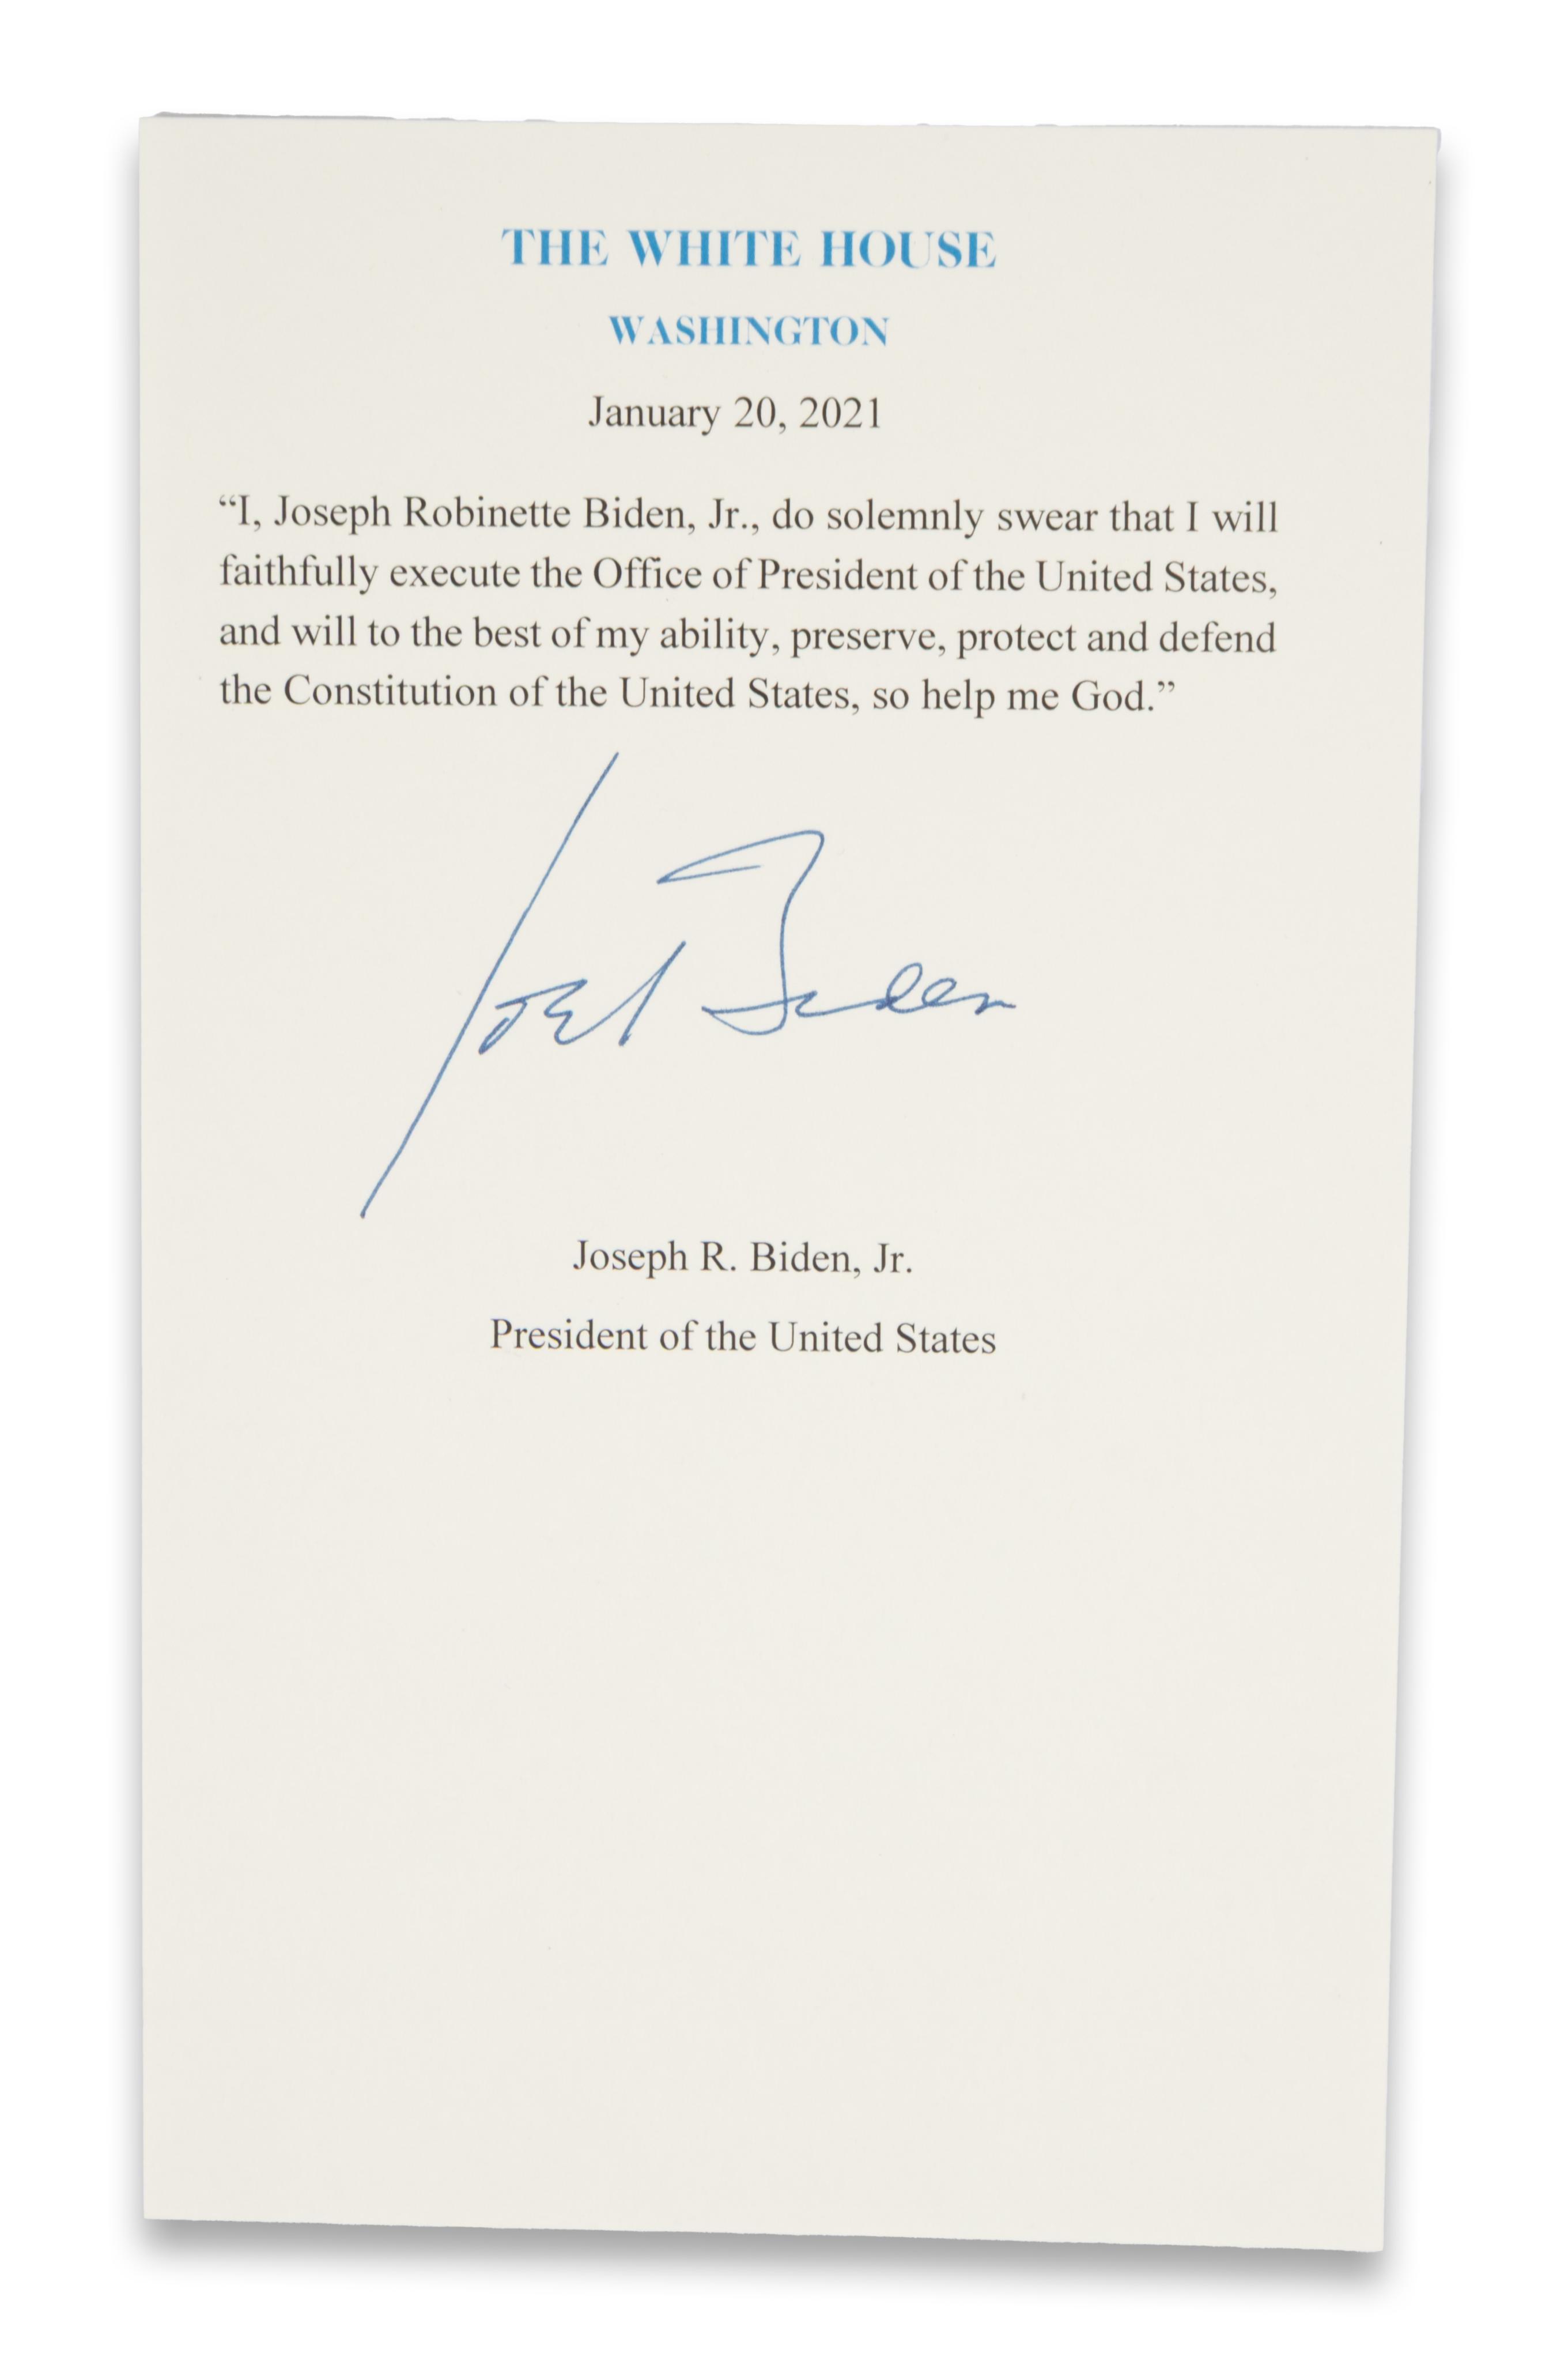 THE WHITE HOUSE
WASHINGTON
January 20, 2021
“I, Joseph Robinette Biden, Jr., do solemnly swear that I will
faithfully execute the Office of President of the United States,
and will to the best of my ability, preserve, protect and defend
the Constitution of the United States, so help me God.”
Joe Biden
Joseph R. Biden, Jr.
President of the United States